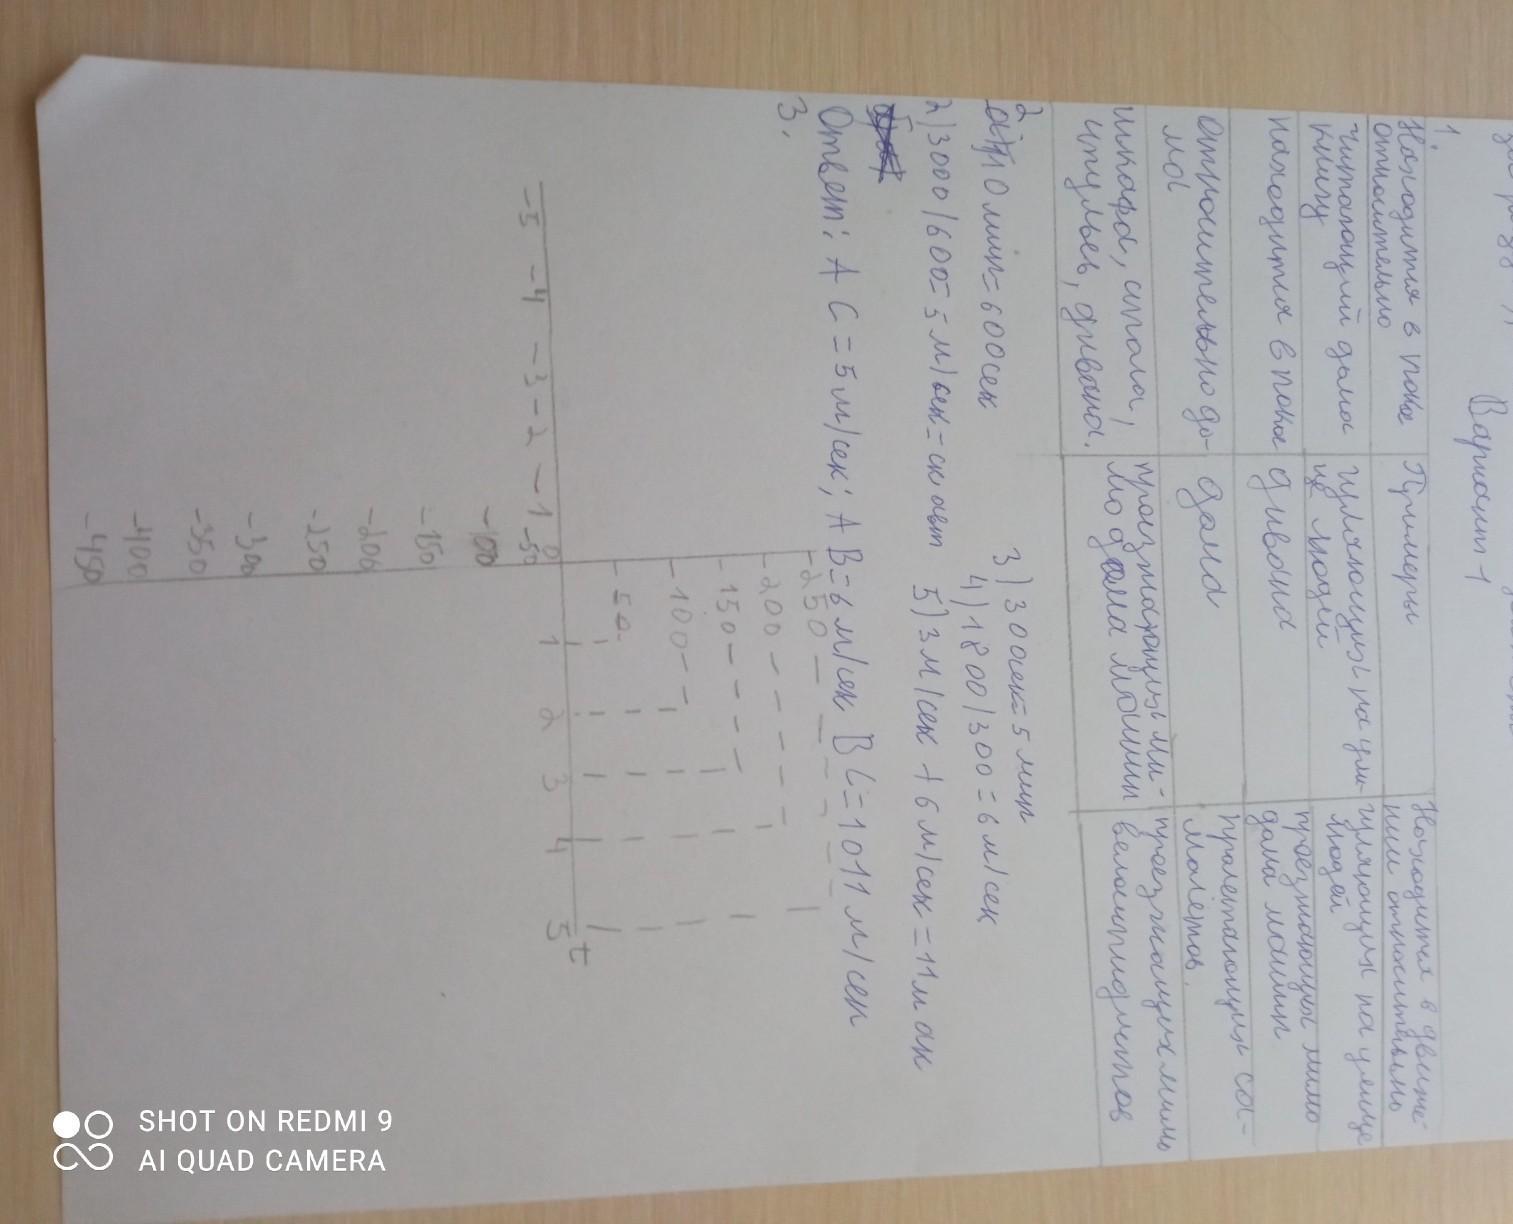 Вариант 1
1.
Находится в покое относительно
Примеры
Находится в движении относительно
читающий дома книгу
гуляющих на улице людей
гуляющих на улице людей
находится в покое
дивана
проезжающих мимо дома машин
относительно дома
дома
пролетающих самолётов.
шкафа, стола, стульев, дивана.
проезжающих мимо дома машин
проезжающих мимо велосипедистов
2
10 мин=600сек
3) 300сек=5 мин
2) 3000/600=5 м/сек=ск авт
4) 1800/300=6 м/сек
5) 3 м/сек + 6 м/сек = 11м
Ответ: AC=5м/сек; AB=6 м/сек BC=1011 м/сек
3.
-250
-200
-150
-100
-50
-5 -4 -3 -2 -1 0 1 2 3 4 5 t
-50
-100
-150
-200
-250
-300
-350
-400
-450
SHOT ON REDMI 9
AI QUAD CAMERA